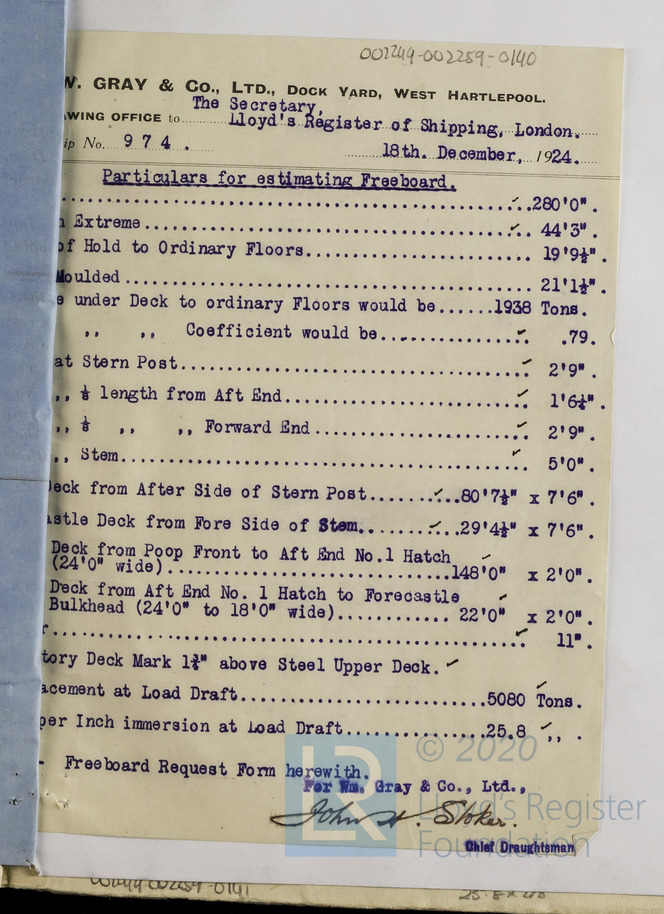 002249-002259-0140
W. GRAY & Co., LTD., DOCK YARD, WEST HARTLEPOOL.
The Secretary,
WING OFFICE to Lloyd's Register of Shipping, London.
ip No. 974.
18th. December, 1924.
Particulars for estimating Freeboard.
280'0".
Extreme 44'3".
of Hold to Ordinary Floors 19'9½".
Moulded 21'1½".
e under Deck to ordinary Floors would be......1938 Tons.
,, ,, Coefficient would be .79.
at Stern Post 2'9".
,, ⅛ length from Aft End 1'6¼".
,, ⅛ ,, ,, Forward End 2'9".
,, Stem 5'0".
Deck from After Side of Stern Post 80'7½" x 7'6".
stle Deck from Fore Side of Stem 29'4½" x 7'6".
Deck from Poop Front to Aft End No.1 Hatch
(24'0" wide) 148'0" x 2'0".
Deck from Aft End No. 1 Hatch to Forecastle
Bulkhead (24'0" to 18'0" wide) 22'0" x 2'0".
r 11".
tory Deck Mark 1¾" above Steel Upper Deck.
acement at Load Draft 5080 Tons.
per Inch immersion at Load Draft 25.8 ,, .
- Freeboard Request Form herewith.
For Wm. Gray & Co., Ltd.,
John H. Stoker.
Chief Draughtsman
© 2020
LR Lloyd's Register
Foundation
002249-002259-0141